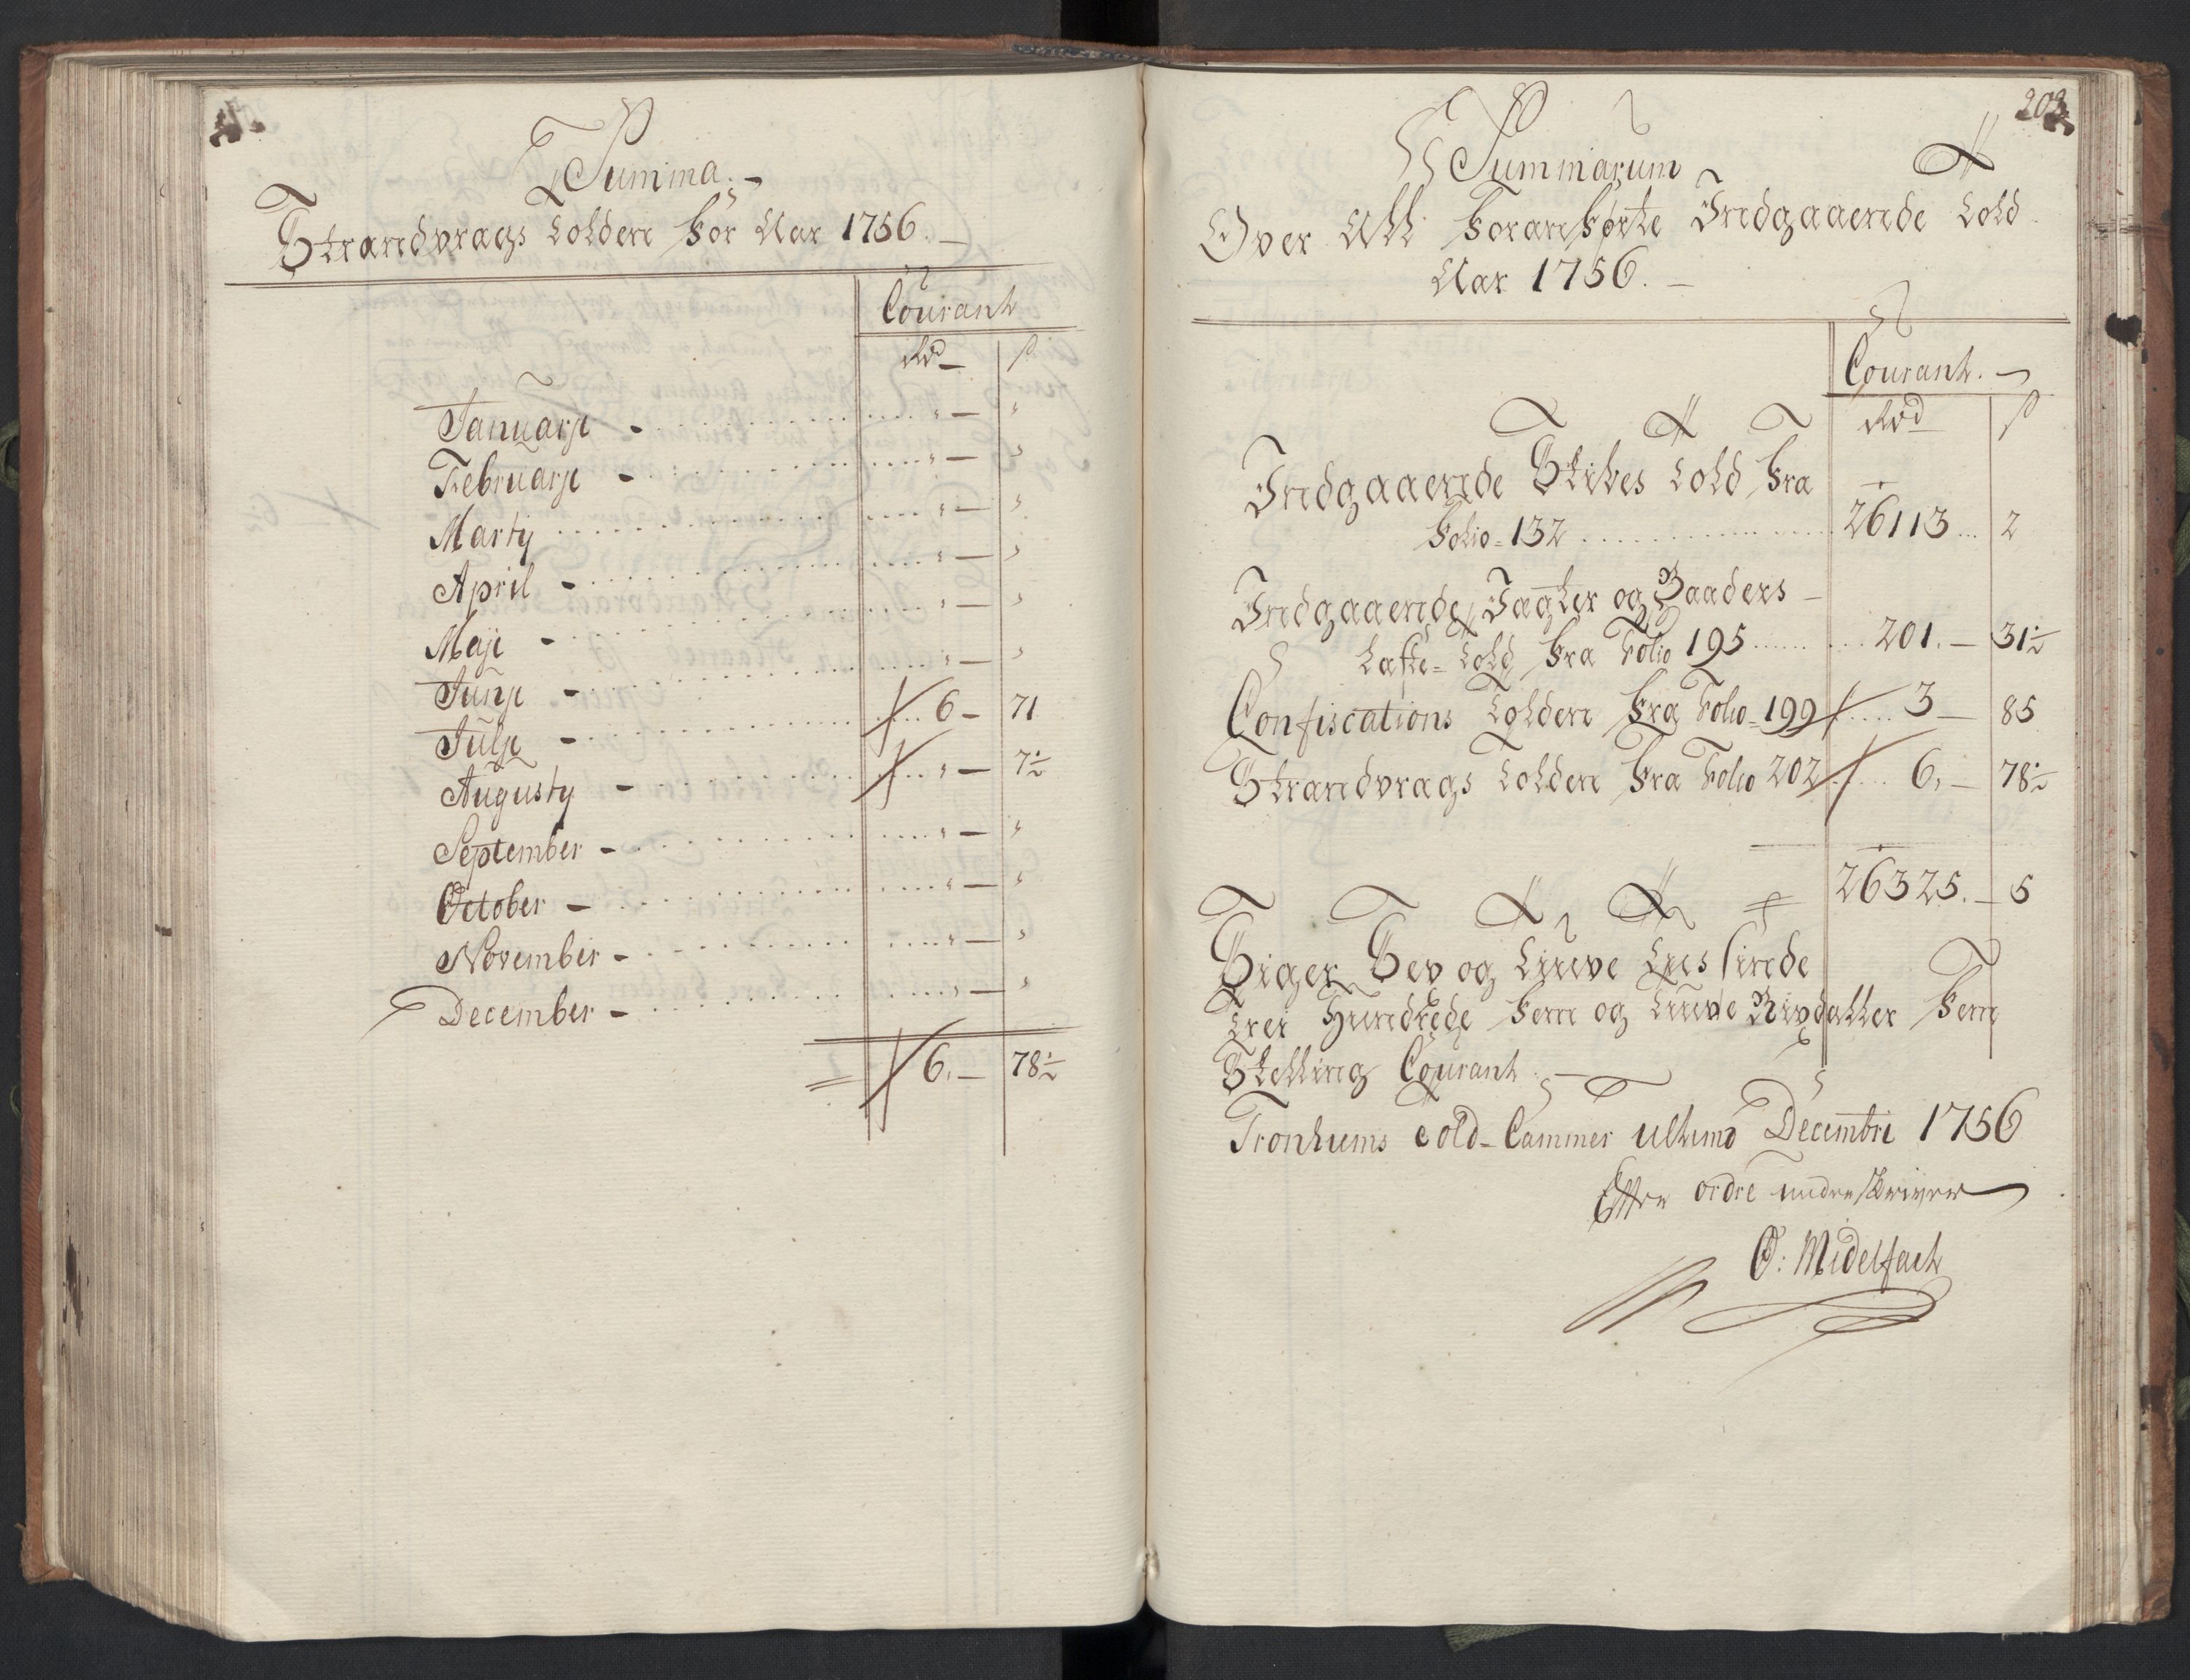 Summa.
Strandvrags Tolden for Aar 1756.
Courant
Rd ß
Januarji - " — "
Februarji - " — "
Martij " — "
April - " — "
Maji - " — "
Junji - " — "
Julji - 6 - 71
Augusty - " — 7½
September - " — "
October - " — "
November - " — "
December - " — "
6. — 78½
203
Summarum
Over All foranførte Indgaaende Told
Aar 1756.
Courant.
Rd ß
Indgaaende Skibes Told fra
folio 132 26113 2
Indgaaende Jagter og Baaders
Laste-Told fra Folio 195 201. — 31½
Confiscations Tolden fra Folio 199 3 — 85
Strandvrags Tolden fra Folio 202 6. — 78½
26325. — 5
Siger Sex og Tiuve Tusinde
Trei Hundrede fem og Tiuve Rixdaller fem
Skelling Courant.
Tronhiems Told-Cammer ultimo Decembri 1756
Efter ordre underskriver
O: Midelfach